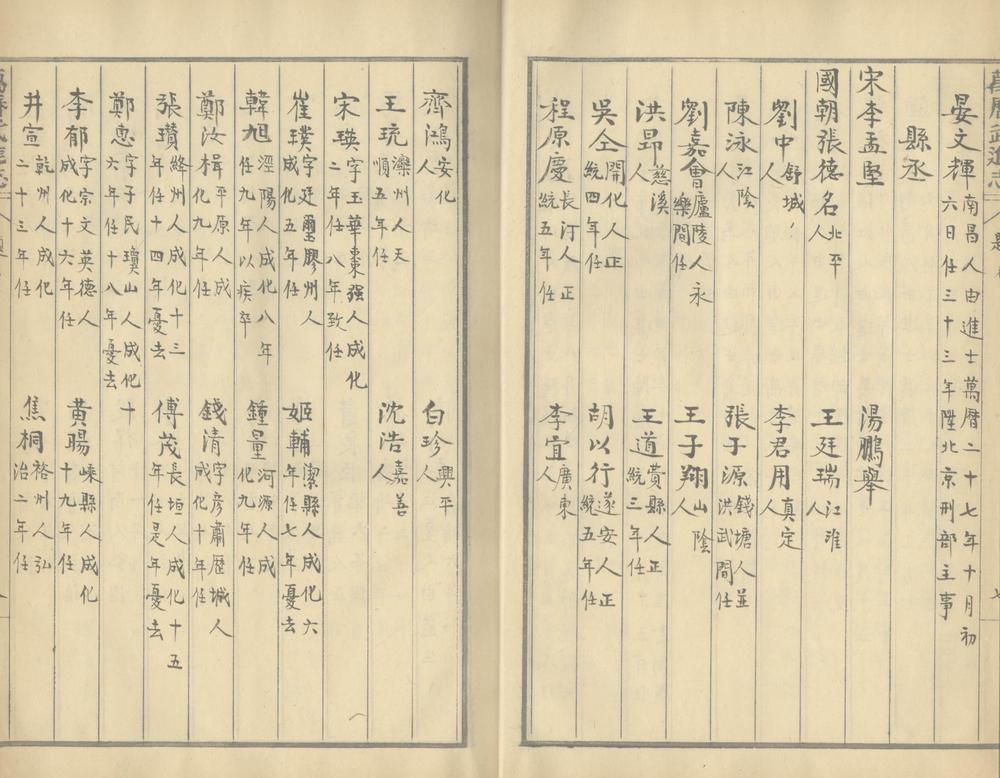 萬曆武進志
晏文輝南昌人由進士萬曆二十七年十月初六日任三十三年陞北京刑部主事
縣丞
宋李孟堅　湯鵬舉
國朝張德名北平人　王廷瑞江淮人
劉中舒城人　李君用真定人
陳泳江陰　張子源錢塘人並洪武間任
劉嘉會廬陵人永樂間任　王子翔山陰人
洪昂慈溪人　王道費縣人正統三年任
吳仝開化人正統四年任　胡以行遂安人正統五年任
程原慶長汀人正統五年任　李宜廣東人
齊鴻安化人　白珍興平人
王珫灤州人天順五年任　沈浩嘉善人
宋瑛字玉華棗强人成化二年任八年致任
崔璞字廷璽膠州人成化五年任　姬輔潔縣人成化六年任七年憂去
韓旭涇陽人成化八年任九年以疾卒　鍾量河源人成化九年任
鄭汝楫平原人成化九年任　錢清字彥肅歷城人成化十年任
張瓚絳州人成化十三年任十四年憂去　傅茂長垣人成化十五年任是年憂去
鄭惠字子民瓊山人成化十六年任十八年憂去
李郁字宗文英德人成化十六年任　黃暘嵊縣人成化十九年任
井宣乾州人成化二十三年任　焦桐裕州人弘治二年任